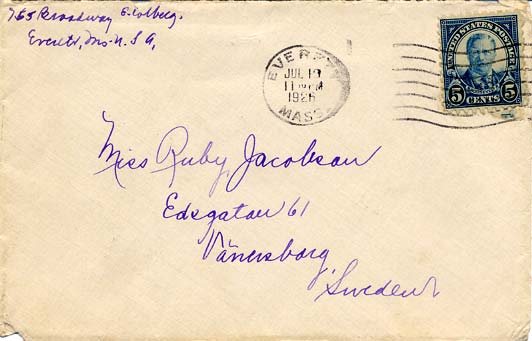 765 Broadway E. Colberg.
Everett, Mas. U. S. A,
EVERETT
JUL 19
11 PM
1926
MASS.
UNITED STATES POSTAGE
ROOSEVELT
5 CENTS 5
Miss Ruby Jacobson
Edsgatan 61
Vänersborg
Sweden